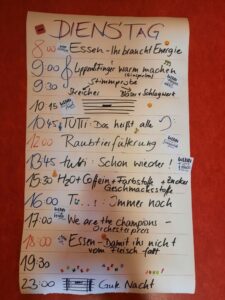 DIENSTAG
8:00 Essen - Ihr braucht Energie
9:00 Lippen/Finger warm machen
(Einspielen)
9:30 Stimmprobe
Streicher Bläser + Schlagwerk
10:15
10:45 TUTTI: Das heißt alle :)
12:00 Raubtierfütterung
13:45 tutti: Schon wieder!
15:30 H2O + Coffein + Farbstoffe + Zucker
Geschmacksstoffe
16:00 Tu...! Immer noch
17:00 We are the Champions -
Orchesterpreis
18:00 Essen - Damit ihr nicht
vom Fleisch fallt
19:30
23:00 Gute Nacht